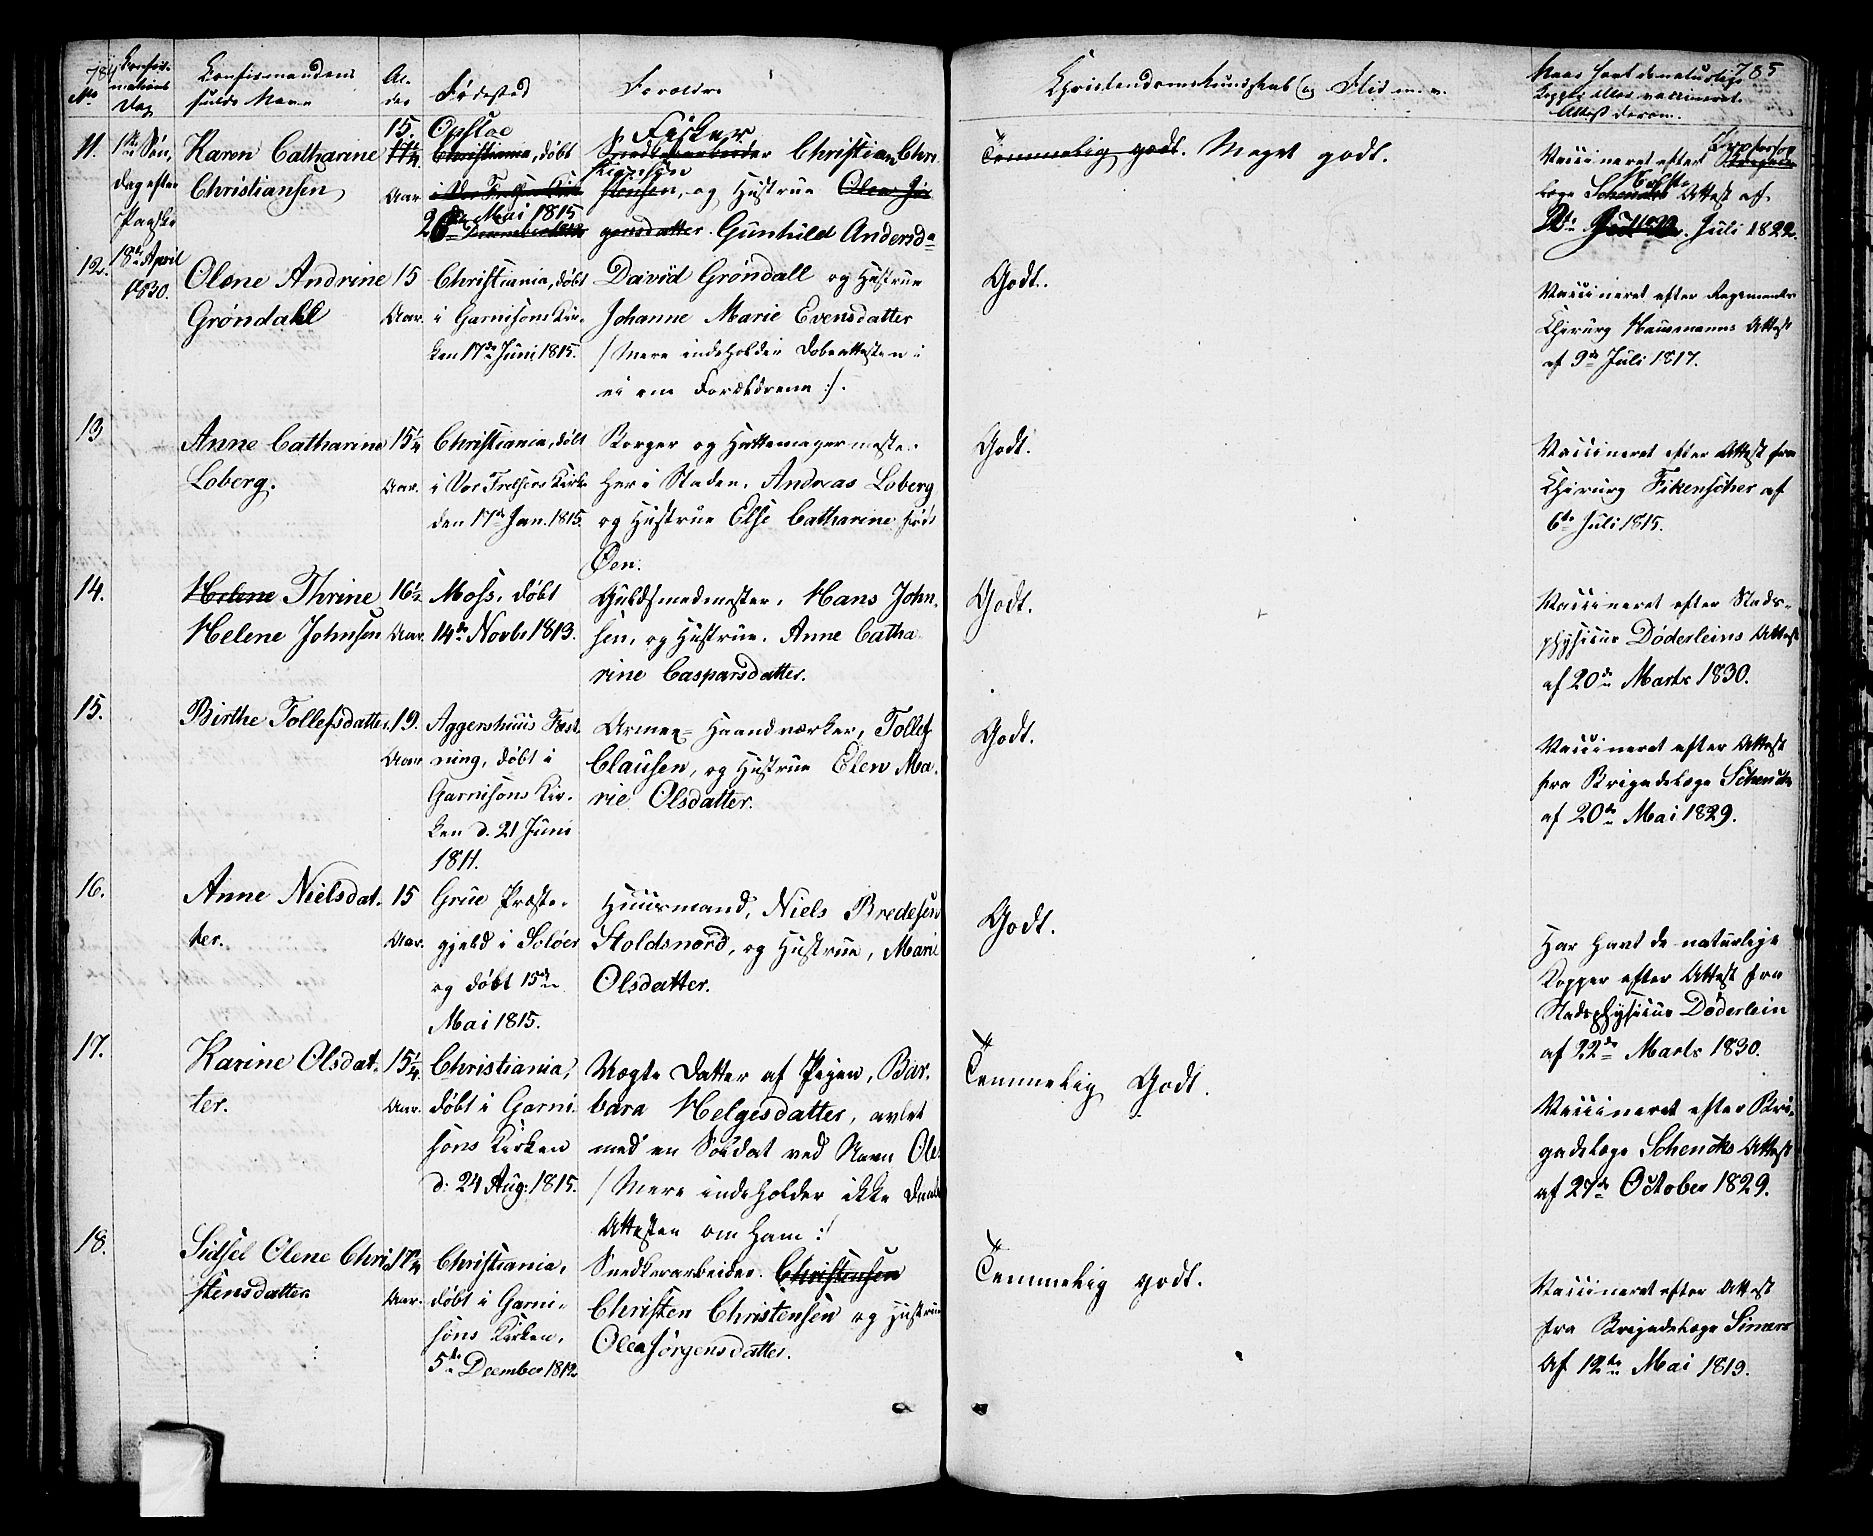 784
No
Confir-
mations
Dag
Confirmandens
fulde Navn
Al-
der
Fødested
Forældre
Christendomskundskab og Flid m. v.
785
Naar havt de naturlige
Kopper eller vaccineret.
Attest derom.
11.
1ste Søn-
dag efter
Paaske
18de April
1830.
Karen Catharine
Christiansen
15.
Aar
Opsloe
Christiania, døbt
i Vor Frelsers Kir-
26de Mai 1815
Fisker
Snedkerarbeider Christian Chri-
stiansen
stensen, og Hustrue Olea Jör-
gensdatter. Gunhild Andersdr
Temmelig godt. Meget godt.
Vaccineret efter
Læge Schencks Attest af
Juli 1822.
12.
Olene Andrine
Grøndahl
15
Aar.
Christiania, døbt
i Garnisons Kir-
ken 17de Juni 1815.
David Grøndall og Hustrue
Johanne Marie Evensdatter
/ Mere indeholder Dobeattesten i
ei om Forældrene :/.
Godt.
Vaccineret efter Regiments
Chirurg Haussmanns Attest
af 9de Juli 1817.
13
Anne Catharine
Loberg.
15¼
Aar.
Christiania, døbt
i Vor Frelsers Kirke
den 17de Jan. 1815.
Borger og Hattemagermester
her i Staden, Andreas Loberg
og Hustrue Else Catharine født
Øen.
Godt.
Vaccineret efter Attest fra
Chirurg Fikenscher af
6te Juli 1815.
14.
Helene Thrine
Helene Johnsen
16½
Aar.
Moss, døbt
14de Novbr 1813.
Guldsmedmester, Hans John-
sen, og Hustrue, Anne Catha-
rine Casparsdatter.
Godt.
Vaccineret efter Stads-
physicus Döderleins Attest
af 20de Marts 1830.
15.
Birthe Tollefsdatter
19.
Aar
Aggershuus Fæst-
ning, døbt i
Garnisons Kir-
ken d. 21 Juni
1811.
Armee-Haandværker, Tollef
Clausen, og Hustrue Elen Ma-
rie Olsdatter.
Godt.
Vaccineret efter Attest
fra Brigadelæge Schenck
af 20de Mai 1829.
16.
Anne Nielsdat-
ter.
15
Aar.
Grue Præste-
gjeld i Soløer
og døbt 15de
Mai 1815.
Huusmand, Niels Bredesen
Skoldsnord, og Hustrue, Marie
Olsdatter.
Godt.
Har havt de naturlige
Kopper efter Attest fra
Stadsphysicus Döderlein
af 22de Marts 1830.
17.
Karine Olsdat-
ter.
15¼
Aar.
Christiania,
døbt i Garni-
sons Kirken
d: 24 Aug: 1815.
Uægte Datter af Pigen, Bar-
bara Helgesdatter, avlet
med en Soldat ved Navn Ole
/ Mere indeholder ikke Daabs
Attesten om ham :/
Temmelig Godt.
Vaccineret efter Bri-
gadelæge Schencks Attest
af 27de October 1829.
18.
Sidsel Olene Chri-
stensdatter
17¼
Aar.
Christiania,
døbt i Garni-
sons Kirken,
5te December 1812
Snedkerarbeider. Christensen
Christen Christensen og Hustrue
Olea Jørgensdatter.
Temmelig godt.
Vaccineret efter Attest
fra Brigadelæge Simers
af 12te Mai 1819.